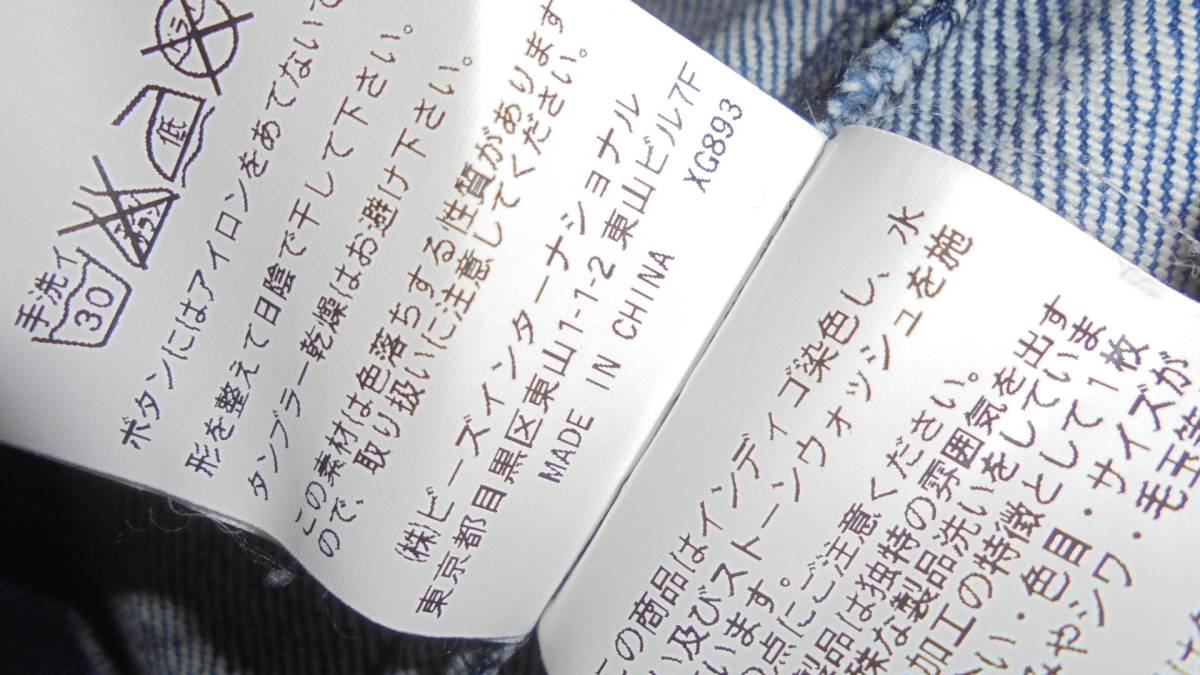 手洗イ
30
低
ボタンにはアイロンをあてないで
形を整えて日陰で干して下さい。
タンブラー乾燥はお避け下さい。
この素材は色落ちする性質があります
ので、取り扱いに注意してください。
㈱ビーズインターナショナル
東京都目黒区東山1-1-2 東山ビル7F
MADE IN CHINA XG893
この商品はインディゴ染色し、水
い及びストーンウォッシュを施
います。
の点にご注意ください。
製品は独特の雰囲気を出す
殊な製品洗いをしていま
加工の特徴として1枚
い・色目・サイズが
みやシワ・毛羽